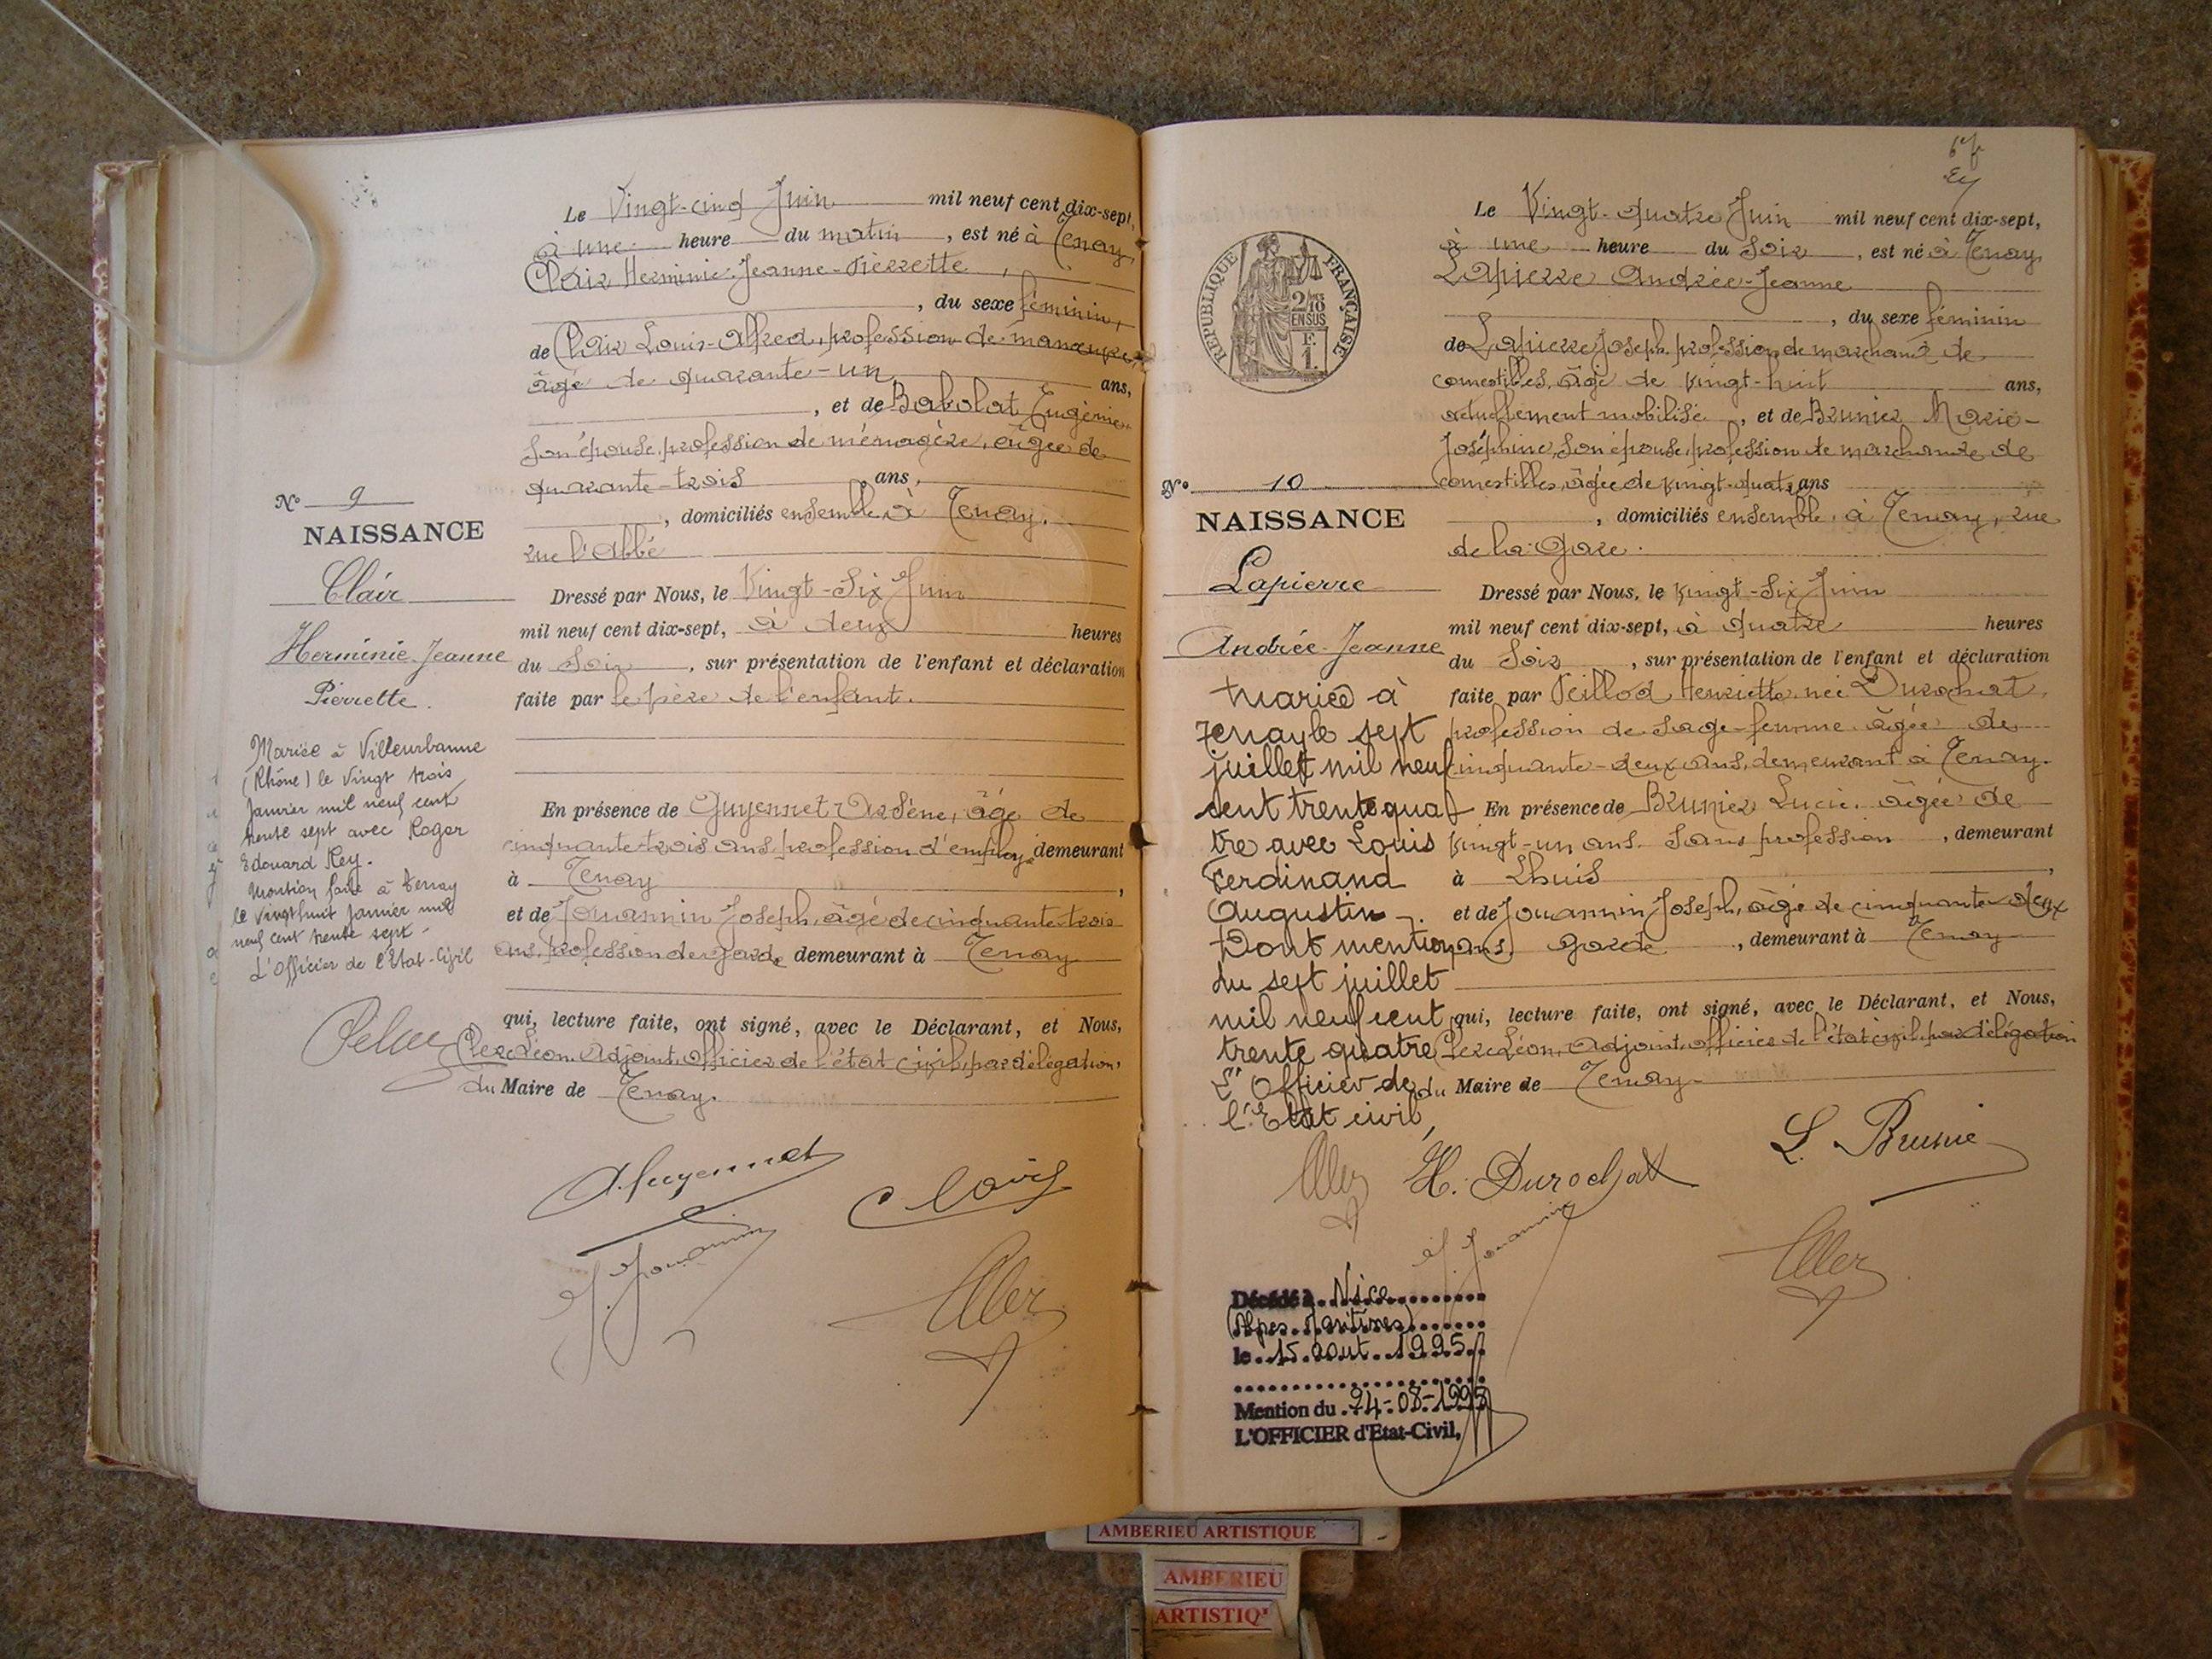 Le Vingt-cinq Juin mil neuf cent dix-sept,
à une heure du matin, est né à Tenay,
Clair Herminie-Jeanne-Pierrette,
, du sexe féminin,
de Clair Louis-Alfred, profession de manœuvre,
âgé de quarante-un ans,
, et de Babolat Eugénie
son épouse, profession de ménagère, âgée de
quarante-trois ans,
, domiciliés ensemble à Tenay,
rue l'Abbé
N° 9
NAISSANCE
Clair
Herminie Jeanne
Pierrette.
Dressé par Nous, le Vingt-Six Juin
mil neuf cent dix-sept, à deux heures
du Soir, sur présentation de l'enfant et déclaration
faite par le père de l'enfant.
Mariée à Villeurbanne
(Rhône) le Vingt trois
Janvier mil neuf cent
trente sept avec Roger
Edouard Rey.
Mention faite à Tenay
le vingt huit Janvier mil
neuf cent trente sept.
L'Officier de l'Etat-Civil
En présence de Guyennet Arsène, âgé de
cinquante-trois ans, profession d'employé demeurant
à Tenay,
et de Jouannin Joseph, âgé de cinquante-trois
ans, profession de garde demeurant à Tenay
qui, lecture faite, ont signé, avec le Déclarant, et Nous,
Clerc Léon, Adjoint, officier de l'état civil, par délégation,
du Maire de Tenay.
A. Guyennet
Clair
J. Jouannin
Le Vingt-quatre Juin mil neuf cent dix-sept,
à une heure du Soir, est né à Tenay,
Lapierre Andrée-Jeanne
, du sexe féminin
de Lapierre Joseph, profession de marchand de
comestibles, âgé de vingt-huit ans,
actuellement mobilisé, et de Brunier Marie-
Joséphine, son épouse, profession de marchande de
comestibles, âgée de vingt-quatre ans
, domiciliés ensemble à Tenay, rue
de la Gare.
RÉPUBLIQUE FRANÇAISE
2/10
EN SUS
F.
1.
N° 10
NAISSANCE
Lapierre
Andrée-Jeanne
Dressé par Nous, le Vingt-Six Juin
mil neuf cent dix-sept, à quatre heures
du Soir, sur présentation de l'enfant et déclaration
faite par Peillod Henriette née Durochat,
profession de sage-femme âgée de
cinquante-deux ans, demeurant à Tenay.
En présence de Brunier Lucie, âgée de
vingt-un ans, sans profession, demeurant
à Lhuis,
et de Jouannin Joseph, âgé de cinquante deux
ans, garde, demeurant à Tenay
qui, lecture faite, ont signé, avec le Déclarant, et Nous,
Clerc Léon, Adjoint, officier de l'état civil, par délégation
du Maire de Tenay
Mariée à
Tenay le sept
juillet mil neuf
cent trente qua
tre avec Louis
Ferdinand
Augustin
Dont mention
du sept juillet
mil neuf cent
trente quatre
L'Officier de
l'Etat civil,
H. Durochat
L. Brunie
J. Jouannin
Décédé à Nice
(Alpes Maritimes)
le 15 août 1995
Mention du 24-08-1995
L'OFFICIER d'Etat-Civil,
AMBERIEU ARTISTIQUE
AMBERIEU
ARTISTIQ